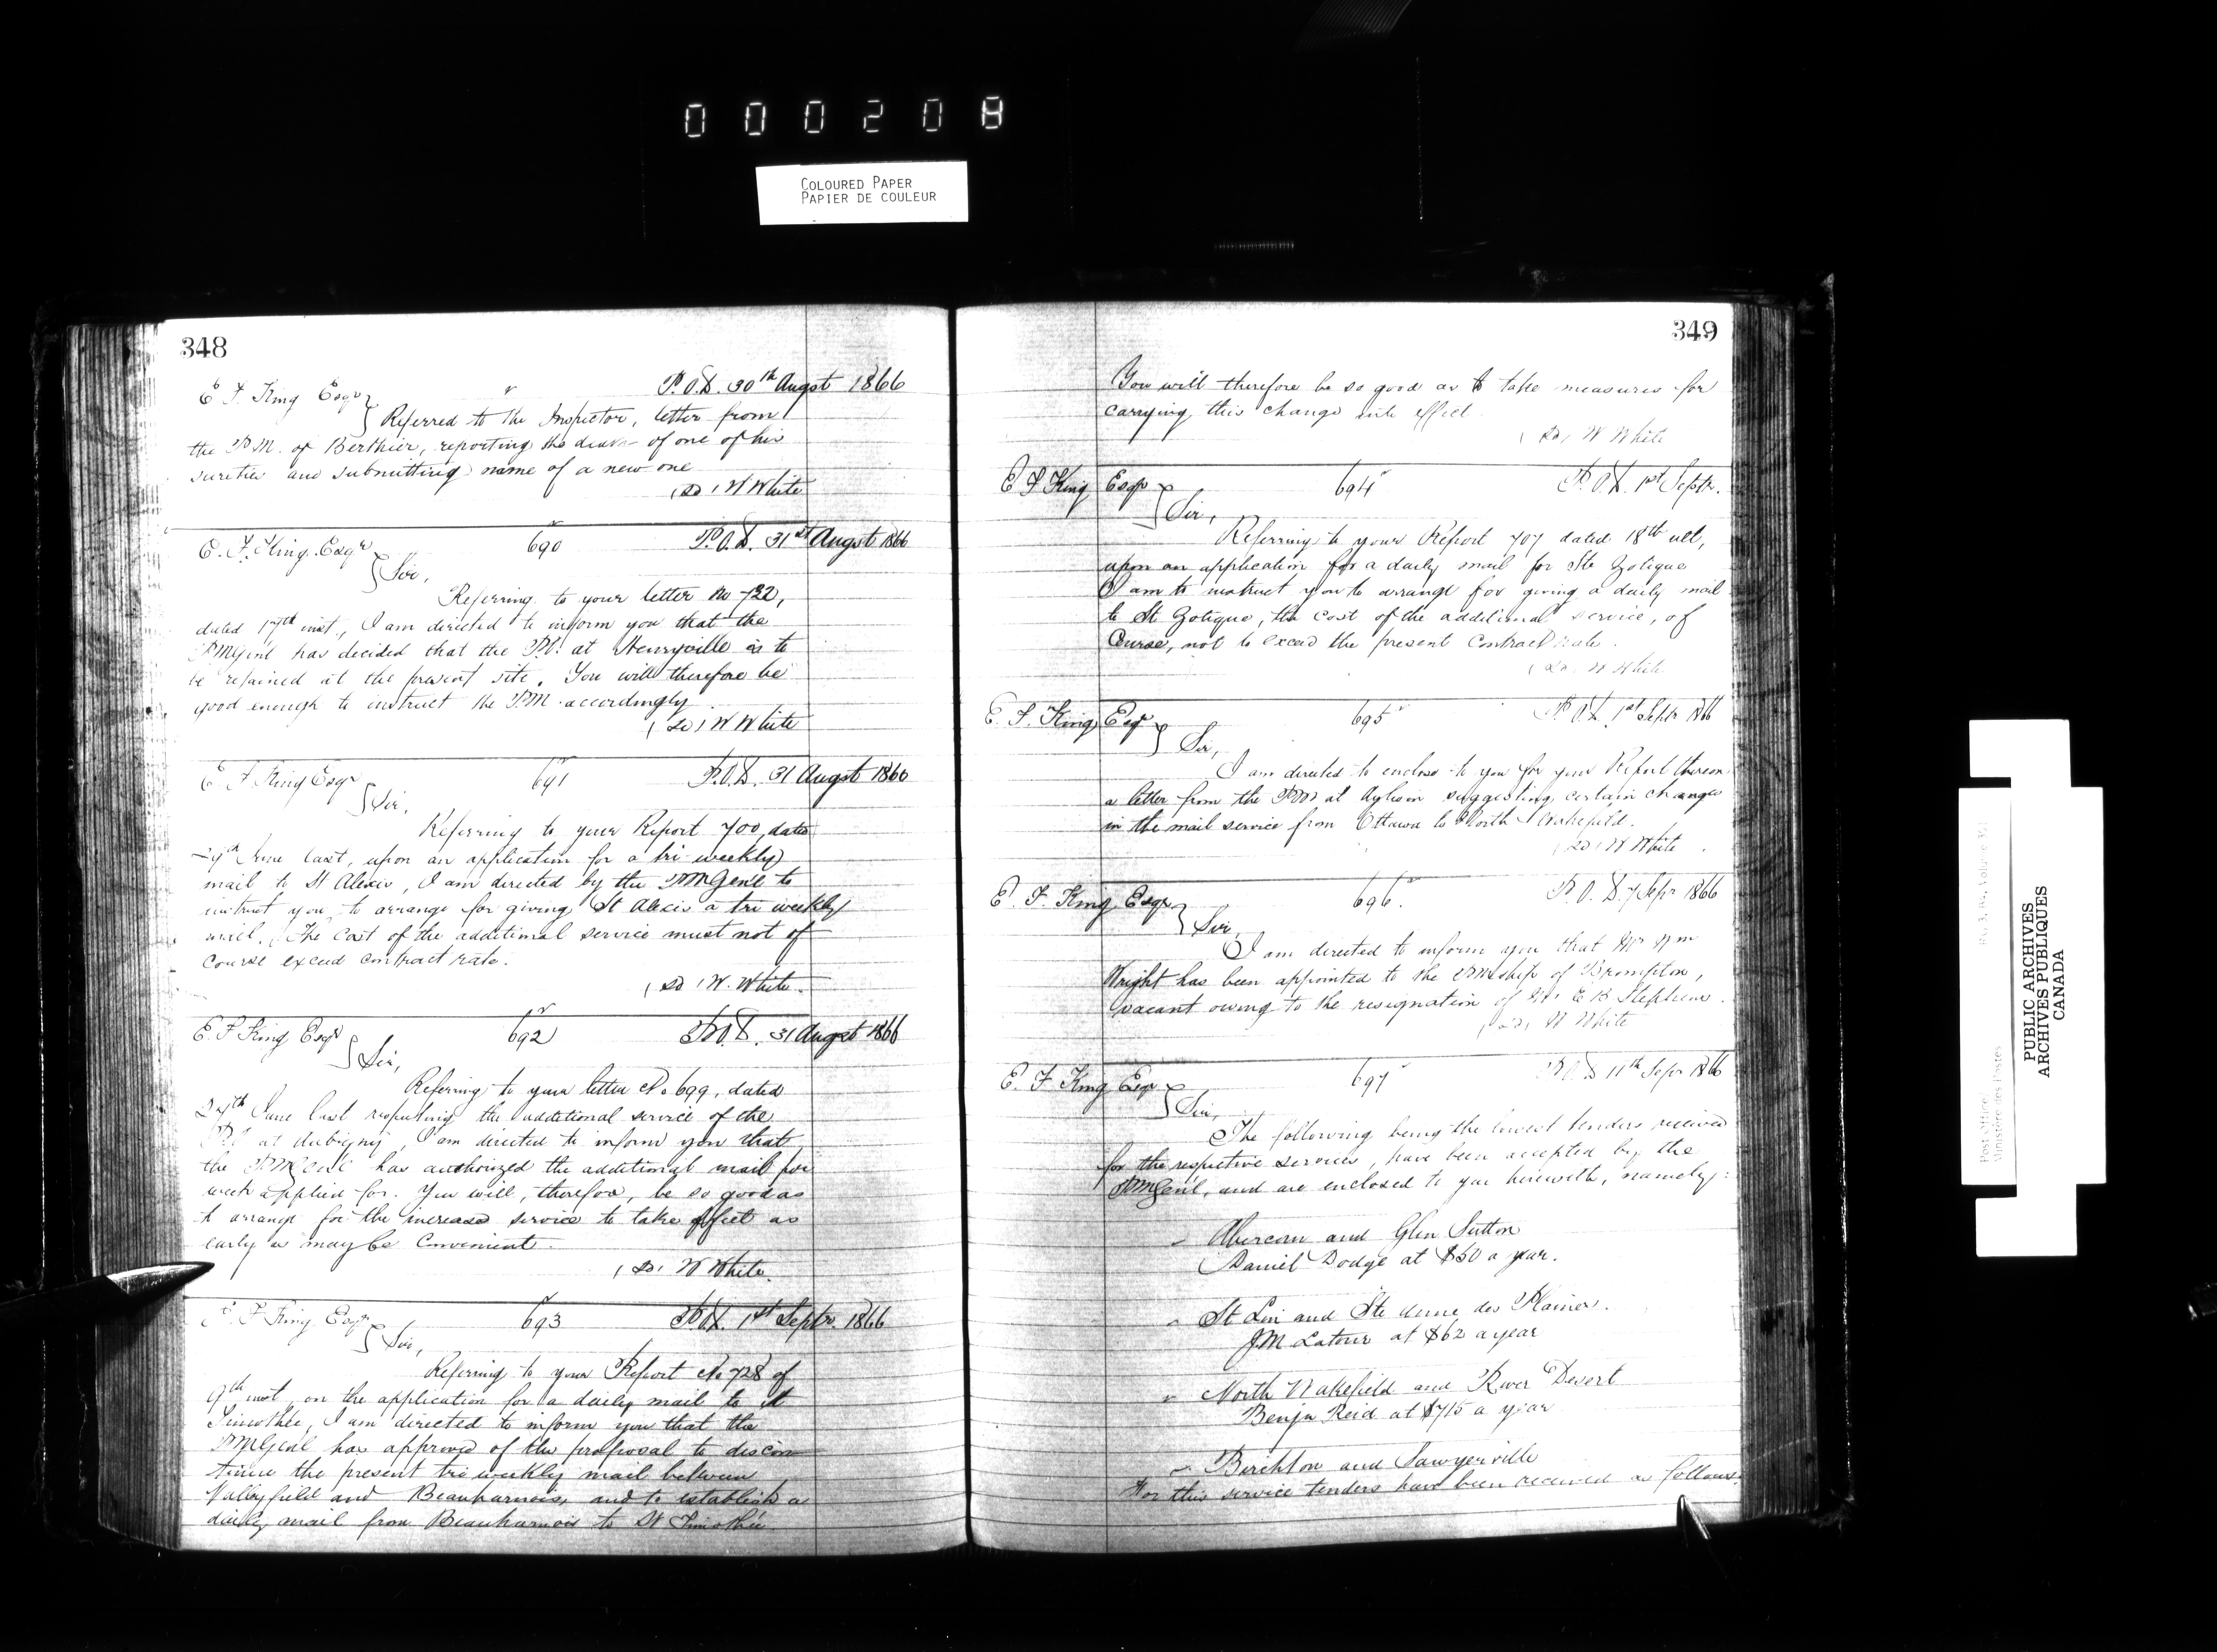 000208
COLOURED PAPER
PAPIER DE COULEUR
348
E F King Esqr P.O.D. 30th Augst 1866
Referred to the Inspector, letter from
the P.M. of Berthier, reporting the death of one of his
sureties and submitting name of a new one
(SD) W White
E. F. King Esqr 690 P.O.D. 31st Augst 1866
Sir,
Referring to your letter No 722,
dated 17th inst., I am directed to inform you that the
PMGenl has decided that the P.O. at Henryville is to
be retained at the present site. You will therefore be
good enough to instruct the P.M. accordingly
(SD) W White
E F King Esqr 691 P.O.D. 31 Augst 1866
Sir,
Referring to your Report 700, dated
June last, upon an application for a tri weekly
mail to St Alexis, I am directed by the PMGen'l to
instruct you to arrange for giving St Alexis a tri weekly
mail. The cost of the additional service must not of
course exceed contract rate.
(SD) W. White.
E F King Esqr 692 P.O.D. 31 Augst 1866
Sir,
Referring to your letter No 699, dated
27th June last respecting the additional service of the
P.O at Aubigny, I am directed to inform you that
the PMGenl has authorized the additional mail per
week applied for. You will, therefore, be so good as
to arrange for the increased service to take effect as
early as may be convenient.
(SD) W White.
E F King Esqr 693 P.O.D. 1st Septr. 1866
Sir,
Referring to your Report No 728 of
inst, on the application for a daily mail to St
Timothée, I am directed to inform you that the
PMGenl has approved of the proposal to discon
tinue the present tri weekly mail between
Valleyfield and Beauharnois, and to establish a
daily mail from Beauharnois to St Timothée
349
You will therefore be so good as to take measures for
carrying this change into effect
(SD) W White
E F King Esqr 694 P.O.D. 1st Septr.
Sir,
Referring to your Report 707 dated 18th ult,
upon an application for a daily mail for Ste Zotique
I am to instruct you to arrange for giving a daily mail
to St Zotique, the cost of the additional service, of
Course, not to exceed the present contract rate.
(SD) W White
E. F. King Esqr 695 P.O.D. 1st Septr 1866
Sir,
I am directed to enclose to you for your Report thereon
a letter from the PM at Aylwin suggesting certain changes
in the mail service from Ottawa to North Wakefield.
(SD) W White
E. F. King Esqr 696. P.O.D. 7 Sepr 1866
Sir,
I am directed to inform you that Mr Wm
Wright has been appointed to the PMship of Brompton,
vacant owing to the resignation of Mr E B Stephens.
(SD) W White
E. F King Esqr 697 P.O.D 11th Sepr 1866
Sir,
The following being the lowest tenders received
for the respective services, have been accepted by the
PMGen'l, and are enclosed to you herewith, namely:
Abercorn and Glen Sutton
Daniel Dodge at $50 a year.
St Lin and Ste Anne des Plaines.
JM Latour at $62 a year
North Wakefield and River Desert
Benjn Reid at $715 a year
Birchton and Sawyerville
For this service tenders have been received as follows
Post Office
Ministère des Postes
RG 3, Volume
PUBLIC ARCHIVES
ARCHIVES PUBLIQUES
CANADA